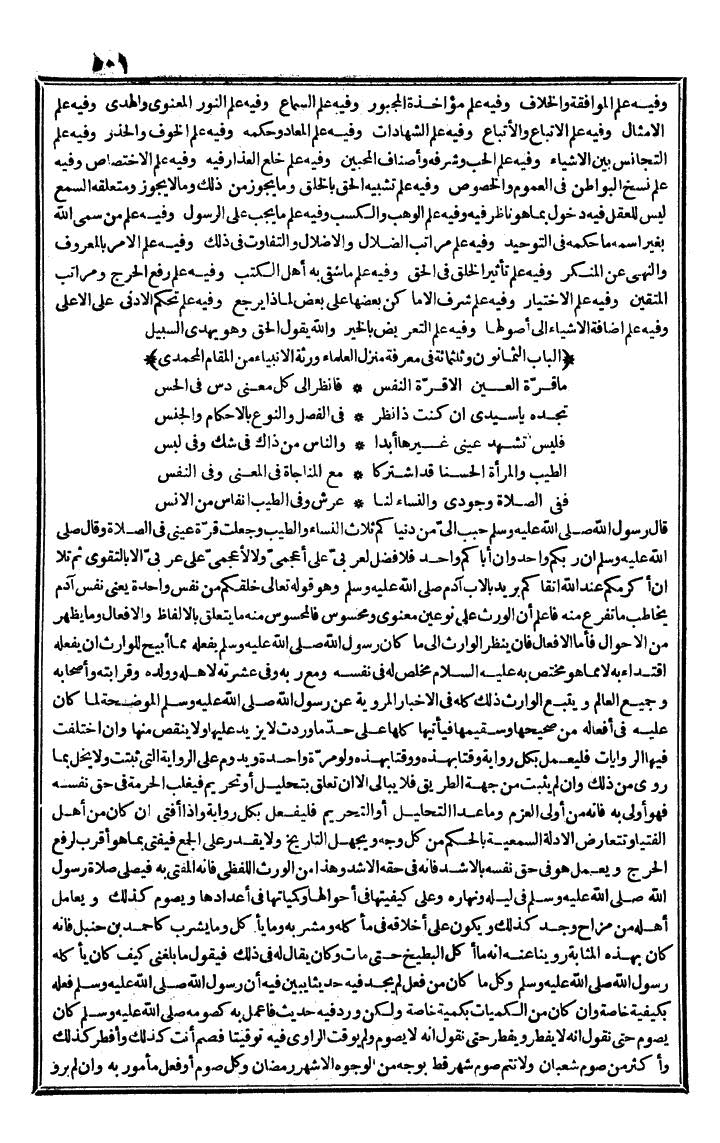 ٥٠١
وفيه علم الموافقة والخلاف وفيه علم مؤاخذة المجبور وفيه علم السماع وفيه علم النور المعنوى والهدى وفيه علم
الامثال وفيه علم الاتباع والأتباع وفيه علم الشهادات وفيه علم المعاد وحكمه وفيه علم الخوف والحذر وفيه علم
التجانس بين الاشياء وفيه علم الحب وشرفه وأصناف المحبين وفيه علم خلع العذار فيه وفيه علم الاختصاص وفيه
علم نسخ البواطن فى العموم والخصوص وفيه علم تشبيه الحق بالخلق وما يجوز من ذلك وما لا يجوز ومتعلقه السمع
ليس للعقل فيه دخول بما هو ناظر فيه وفيه علم الوهب والكسب وفيه علم ما يجب على الرسول وفيه علم من سمى الله
بغير اسمه ما حكمه فى التوحيد وفيه علم مراتب الضلال والاضلال والتفاوت فى ذلك وفيه علم الامر بالمعروف
والنهى عن المنكر وفيه علم تأثير الخلق فى الحق وفيه علم ماشقى به أهل الكتب وفيه علم رفع الحرج ومراتب
المتقين وفيه علم الاختيار وفيه علم شرف الاماكن بعضها على بعض لماذا يرجع وفيه علم تحكم الادنى على الاعلى
وفيه علم اضافة الاشياء الى أصولها وفيه علم التعريض بالخير والله يقول الحق وهو يهدى السبيل
﴿الباب الثمانون وثلثمائة فى معرفة منزل العلماء ورثة الانبياء من المقام المحمدى﴾
ما قرّة العين الا قرّة النفس * فانظر الى كل معنى دس فى الحس
تجده ياسيدى ان كنت ذا نظر * فى الفصل والنوع بالاحكام والجنس
فليس تشهد عينى غيرها أبدا * والناس من ذاك فى شك وفى لبس
الطيب والمرأة الحسنا قد اشتركا * مع المناجاة فى المعنى وفى النفس
ففى الصلاة وجودى والنساء لنا * عرش وفى الطيب انفاس من الانس
قال رسول الله صلى الله عليه وسلم حبب الىّ من دنياكم ثلاث النساء والطيب وجعلت قرّة عينى فى الصلاة وقال صلى
الله عليه وسلم ان ربكم واحد وان أباكم واحد فلا فضل لعربىّ على أعجمىّ ولا لأعجمىّ على عربىّ الا بالتقوى ثم تلا
ان أكرمكم عند الله اتقاكم يريد بالاب آدم صلى الله عليه وسلم وهو قوله تعالى خلقكم من نفس واحدة يعنى نفس آدم
يخاطب ما تفرع منه فاعلم أن الورث على نوعين معنوى ومحسوس فالمحسوس منه ما يتعلق بالالفاظ والافعال وما يظهر
من الاحوال فأما الافعال فان ينظر الوارث الى ما كان رسول الله صلى الله عليه وسلم يفعله مما أبيح للوارث ان يفعله
اقتداء به لا مما هو مختص به عليه السلام مخلص له فى نفسه ومع ربه وفى عشرته لاهله وولده وقرابته وأصحابه
وجميع العالم ويتبع الوارث ذلك كله فى الاخبار المروية عن رسول الله صلى الله عليه وسلم الموضحة لما كان
عليه فى أفعاله من صحيحها وسقيمها فيأتيها كلها على حدّ ما وردت لا يزيد عليها ولا ينقص منها وان اختلفت
فيها الروايات فليعمل بكل رواية وقتا بهذه ووقتا بهذه ولو مرّة واحدة ويدوم على الرواية التى ثبتت ولا يخل بما
روى من ذلك وان لم يثبت من جهة الطريق فلا يبالى الا ان تعلق بتحليل أو تحريم فيغلب الحرمة فى حق نفسه
فهو أولى به فانه من أولى العزم وما عدا التحليل أو التحريم فليفعل بكل رواية واذا أفتى ان كان من أهل
الفتيا وتتعارض الادلة السمعية بالحكم من كل وجه ويجهل التاريخ ولا يقدر على الجمع فيفتى بما هو أقرب لرفع
الحرج ويعمل هو فى حق نفسه بالاشد فانه فى حقه الاشد وهذا من الورث اللفظى فانه المفتى به فيصلى صلاة رسول
الله صلى الله عليه وسلم فى ليله ونهاره وعلى كيفيتها فى أحوالها وكمياتها فى أعدادها ويصوم كذلك ويعامل
أهله من مزاح وجد كذلك ويكون على أخلاقه فى مأكله ومشربه وما يأكل وما يشرب كاحمد بن حنبل فانه
كان بهذه المثابة روينا عنه انه ما أكل البطيخ حتى مات وكان يقال له فى ذلك فيقول ما بلغنى كيف كان يأكله
رسول الله صلى الله عليه وسلم وكل ما كان من فعل لم يجد فيه حديثا يبين فيه أن رسول الله صلى الله عليه وسلم فعله
بكيفية خاصة وان كان من الكميات بكمية خاصة ولكن ورد فيه حديث فاعمل به كصومه صلى الله عليه وسلم كان
يصوم حتى نقول انه لا يفطر ويفطر حتى نقول انه لا يصوم ولم يوقت الراوى فيه توقيتا فصم أنت كذلك وأفطر كذلك
وأكثر من صوم شعبان ولا تتم صوم شهر قط بوجه من الوجوه الا شهر رمضان وكل صوم أو فعل مأمور به وان لم يرو